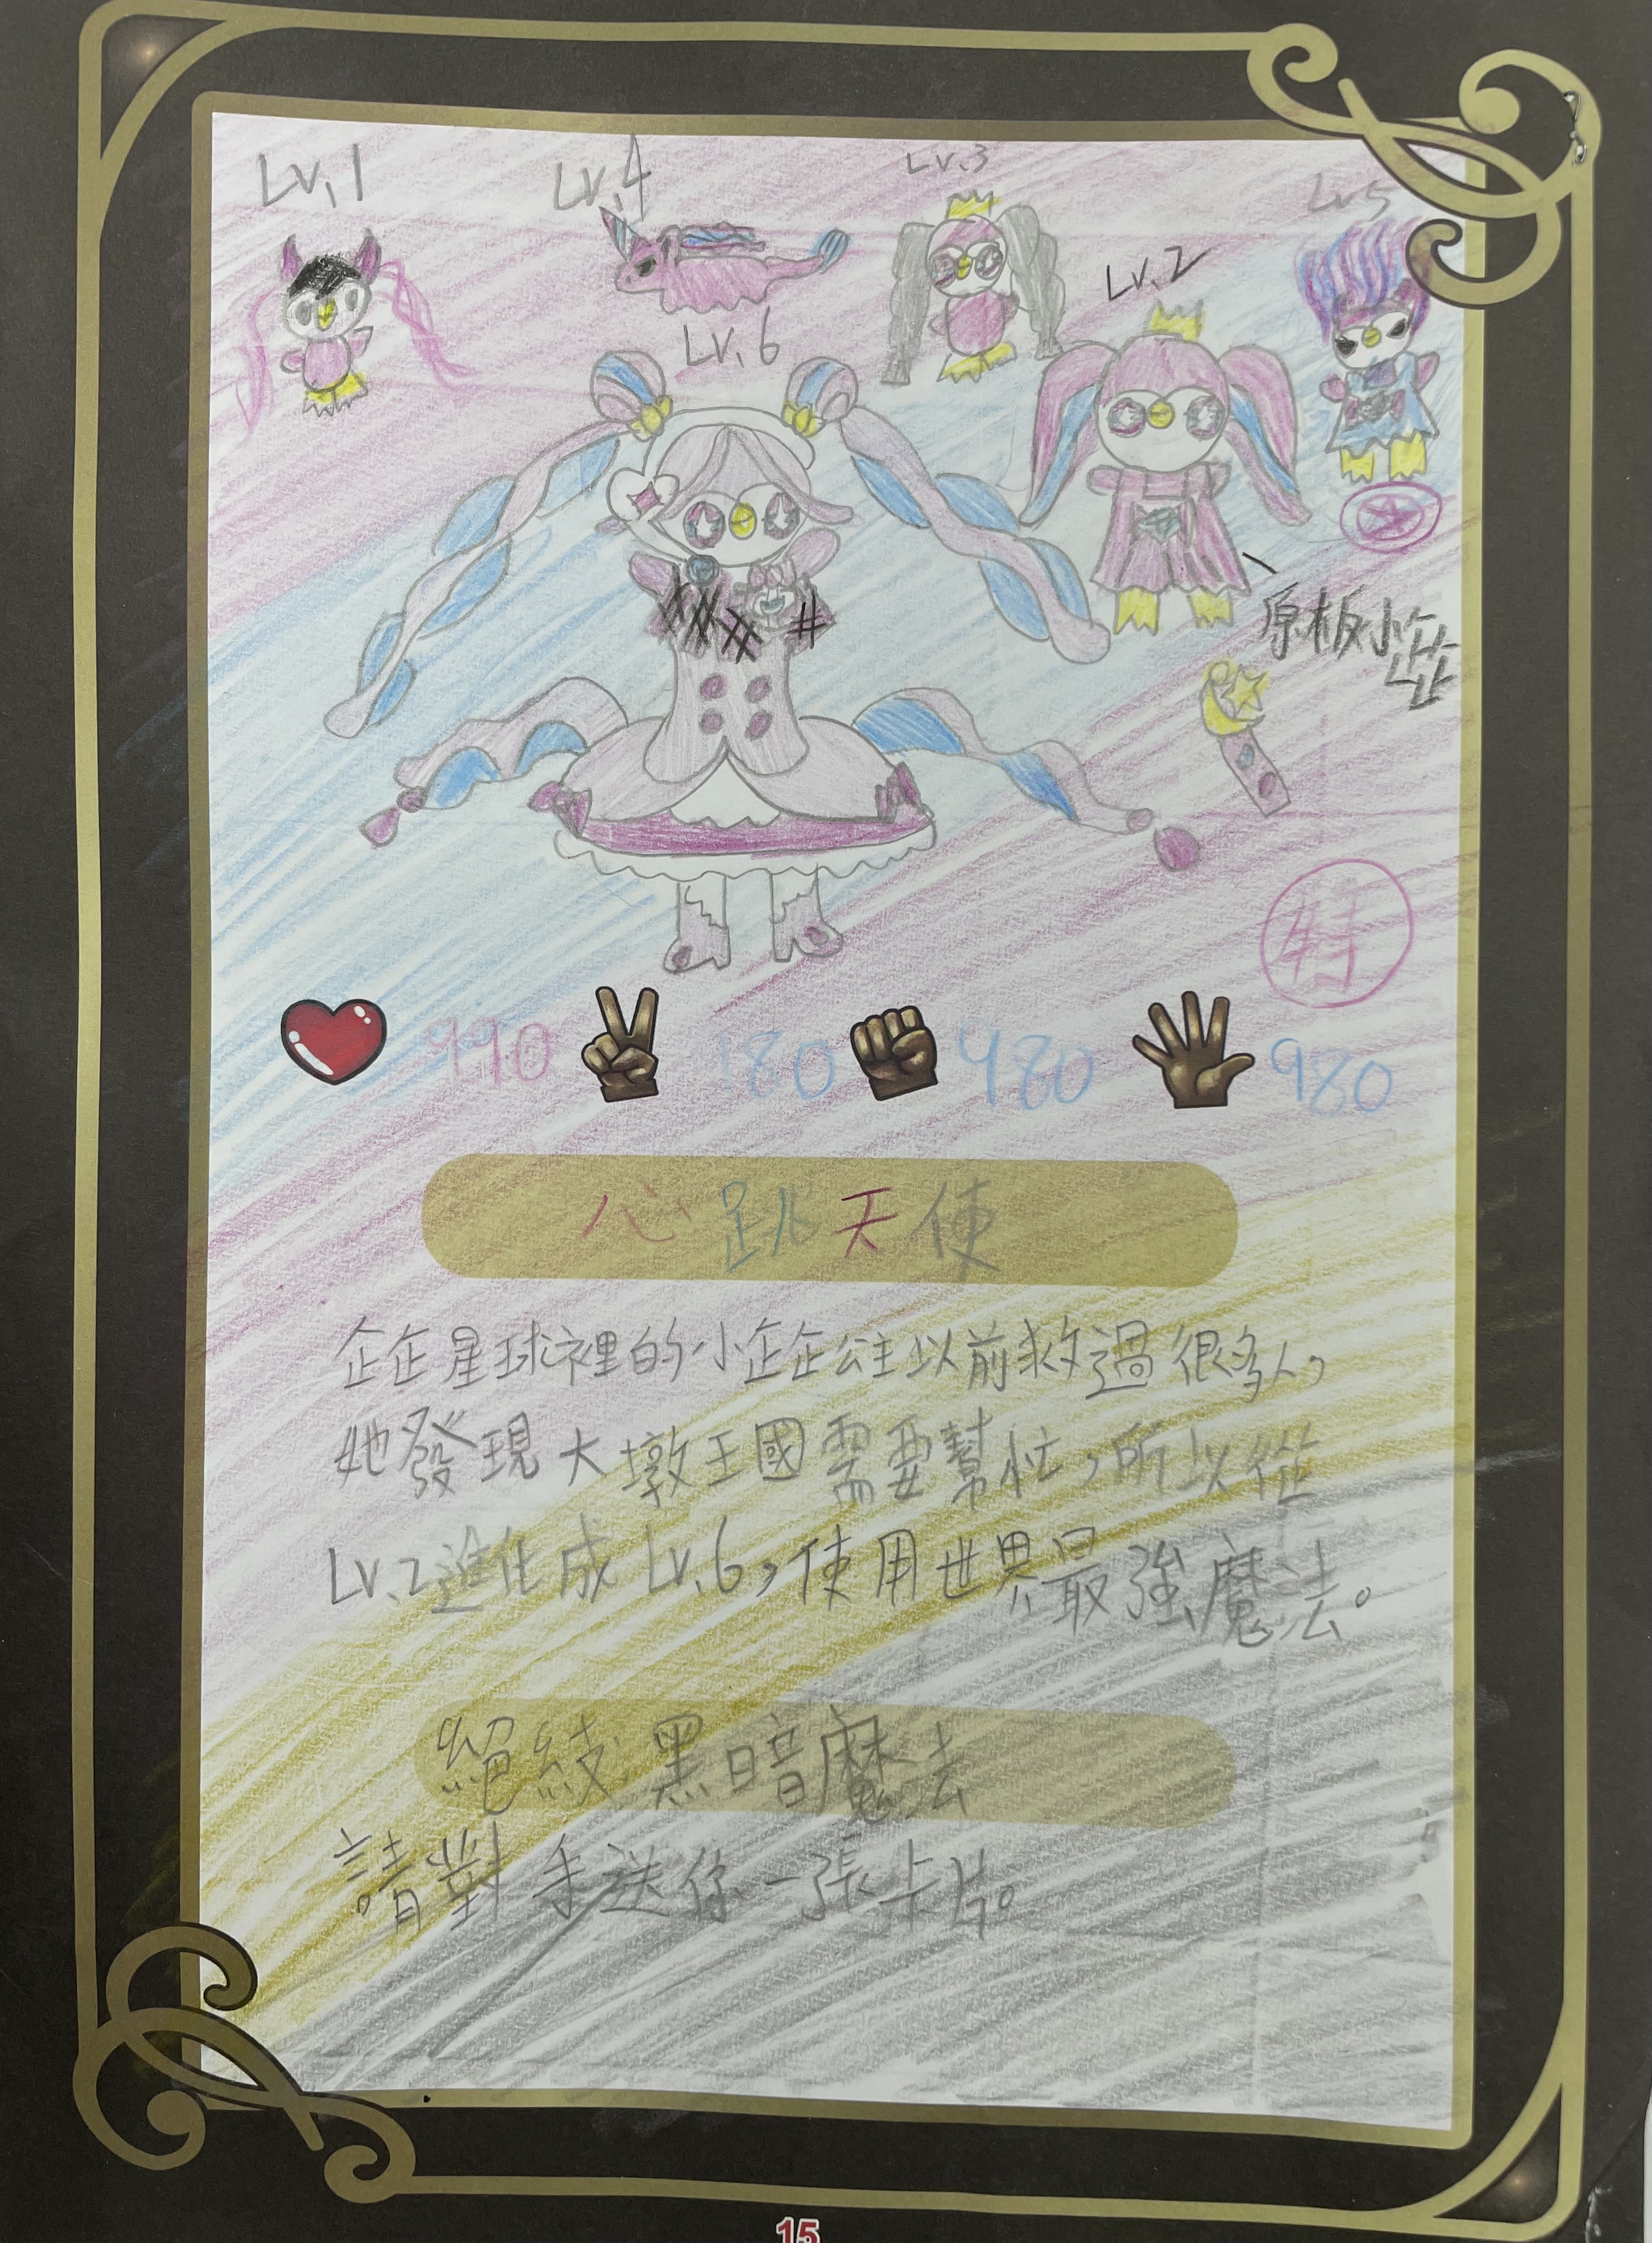 Lv.1
Lv.4
Lv.3
Lv5
Lv.2
Lv.6
原板小企企
特
990 180 480 980
心跳天使
企企星球裡的小企企公主以前救過很多人,
她發現大墩王國需要幫忙,所以從
Lv.2進化成Lv.6,使用世界最強魔法。
絕 黑暗魔法
請對手送你一張卡片。
15